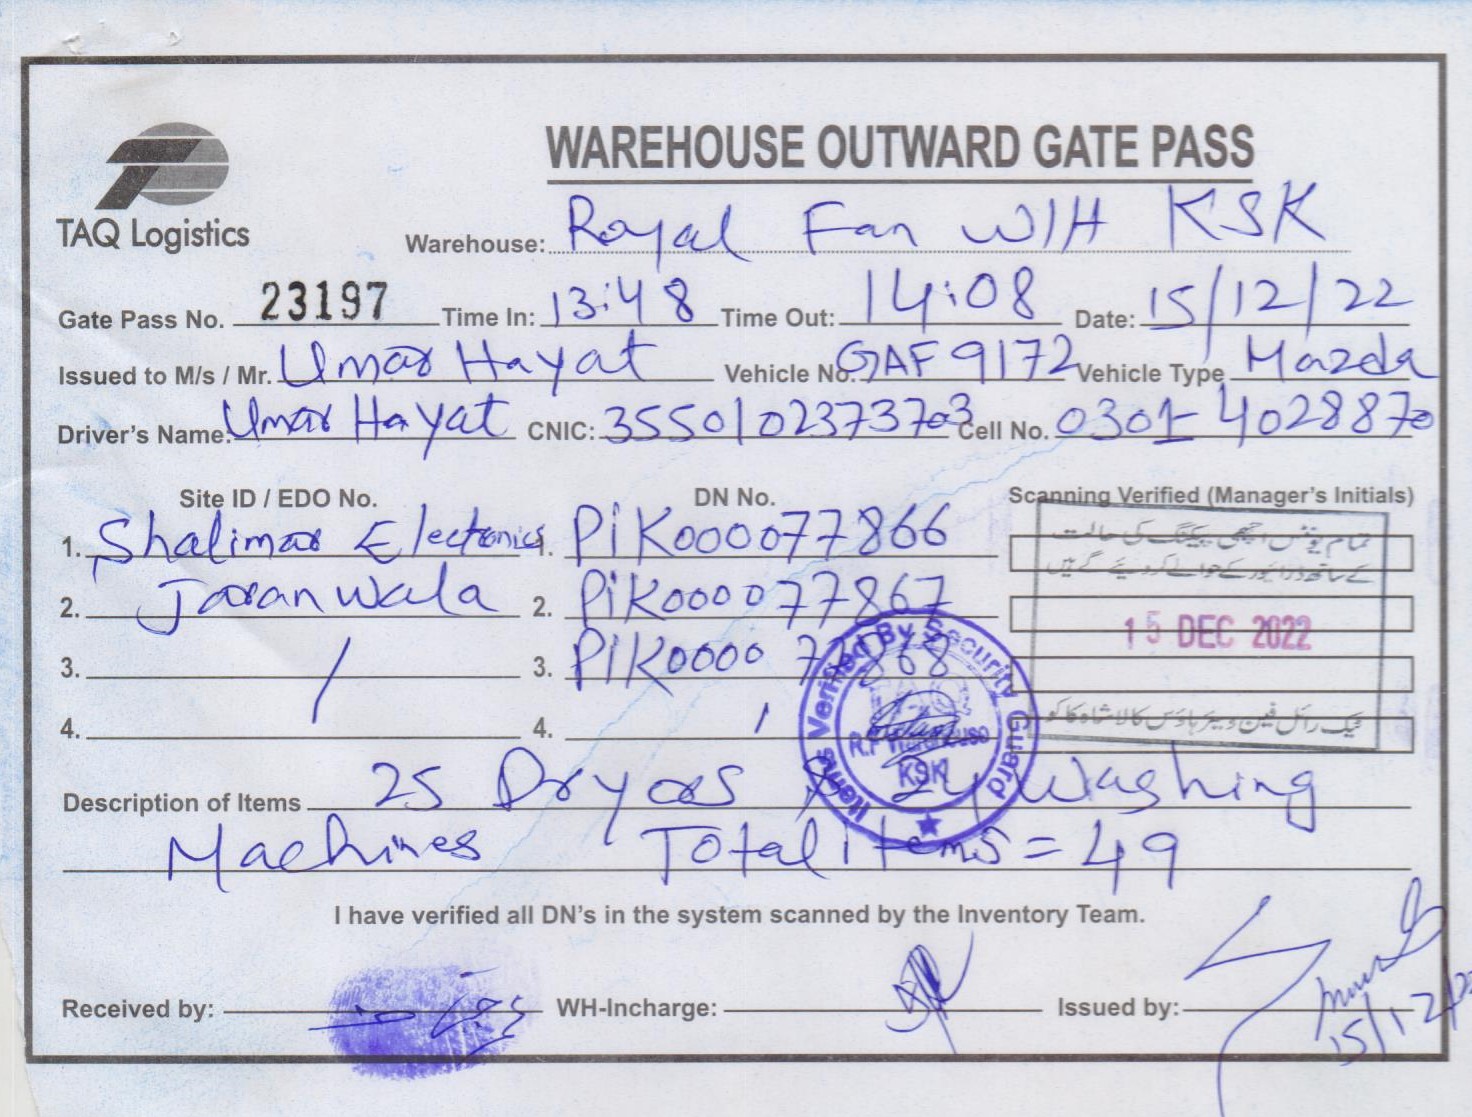 WAREHOUSE OUTWARD GATE PASS
TAQ Logistics
Warehouse: Royal Fan W/H KSK
Gate Pass No. 23197 Time In: 13:48 Time Out: 14:08 Date: 15/12/22
Issued to M/s / Mr. Umar Hayat Vehicle No. GAF 9172 Vehicle Type Mazda
Driver's Name: Umar Hayat CNIC: 3550102373703 Cell No. 0301-4028870
Site ID / EDO No. DN No. Scanning Verified (Manager's Initials)
1. Shalimar Electronics 1. PiK000077866
تمام یونٹس اچھی پیکنگ کی حالت
کے ساتھ ڈرائیور کے حوالے کر دیئے گئے ہیں
2. Jaranwala 2. PiK000077867
15 DEC 2022
3. / 3. PIK000077868
4. 4.
ٹیک رائل فین ویئر ہاؤس کالا شاہ کاکو
Items Verified By Security Guard
R.F Warehouse
KSK
Description of Items 25 Dryars & 24 Washing
Machines Total items = 49
I have verified all DN's in the system scanned by the Inventory Team.
Received by: WH-Incharge: Issued by:
15/12/22